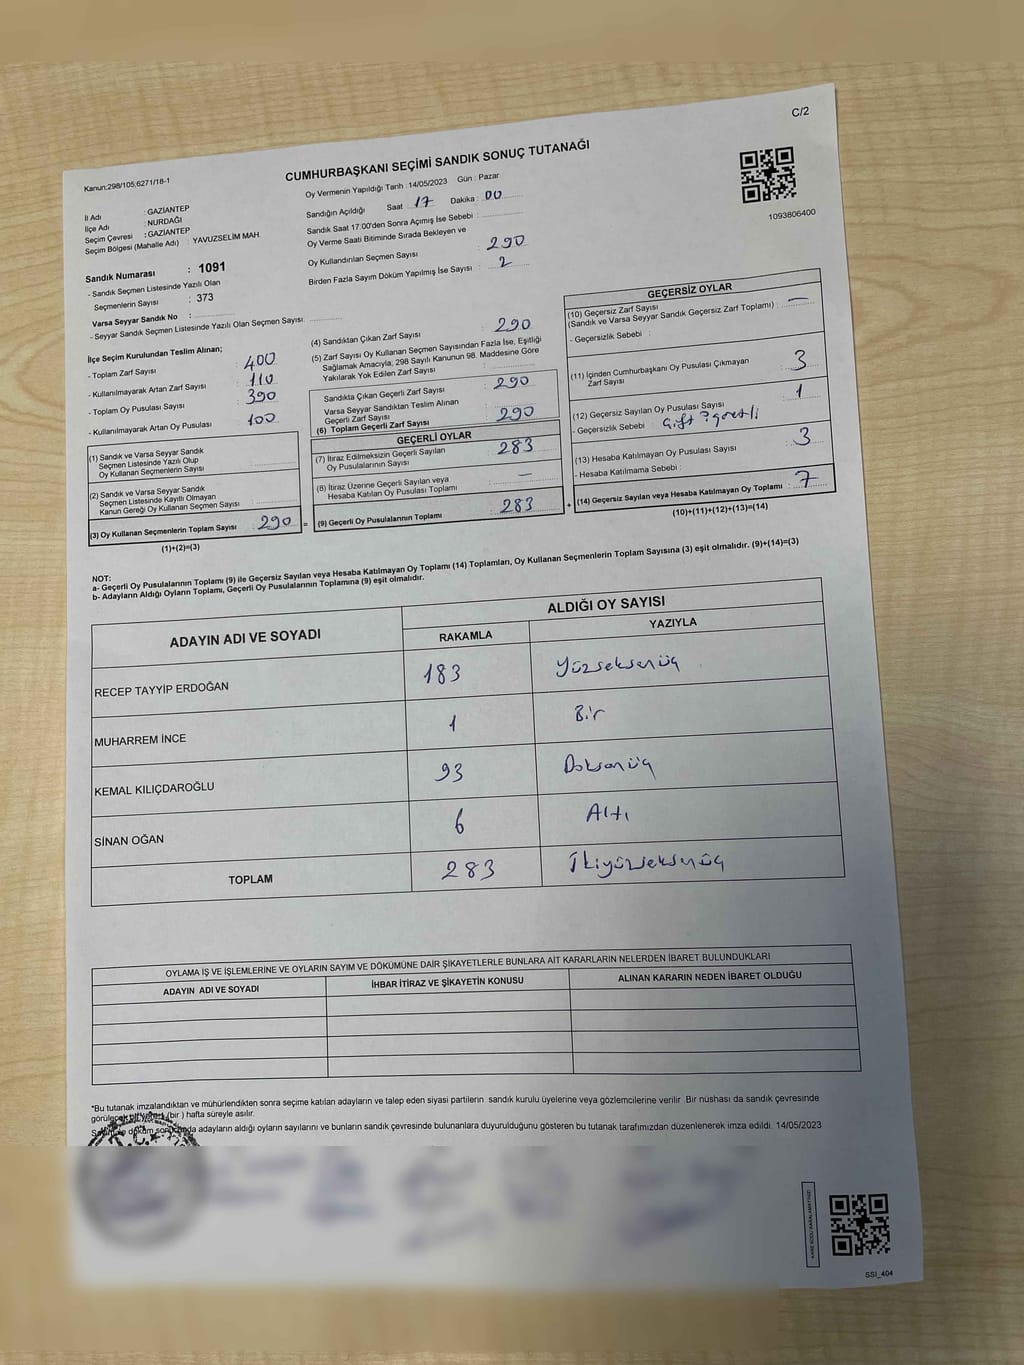 C/2
Kanun:298/105,6271/18-1
CUMHURBAŞKANI SEÇİMİ SANDIK SONUÇ TUTANAĞI
1093806400
İl Adı : GAZİANTEP
İlçe Adı : NURDAĞI
Seçim Çevresi : GAZİANTEP
Seçim Bölgesi (Mahalle Adı) : YAVUZSELİM MAH.
Sandık Numarası : 1091
- Sandık Seçmen Listesinde Yazılı Olan
Seçmenlerin Sayısı : 373
Varsa Seyyar Sandık No :
- Seyyar Sandık Seçmen Listesinde Yazılı Olan Seçmen Sayısı:
Oy Vermenin Yapıldığı Tarih : 14/05/2023 Gün : Pazar
Sandığın Açıldığı Saat 17 Dakika : 00
Sandık Saat 17:00'den Sonra Açımış İse Sebebi :
Oy Verme Saati Bitiminde Sırada Bekleyen ve
Oy Kullandırılan Seçmen Sayısı : 290
Birden Fazla Sayım Döküm Yapılmış İse Sayısı : 2
İlçe Seçim Kurulundan Teslim Alınan;
- Toplam Zarf Sayısı : 400
- Kullanılmayarak Artan Zarf Sayısı : 110
- Toplam Oy Pusulası Sayısı : 390
- Kullanılmayarak Artan Oy Pusulası : 100
(1) Sandık ve Varsa Seyyar Sandık
Seçmen Listesinde Yazılı Olup
Oy Kullanan Seçmenlerin Sayısı :
(2) Sandık ve Varsa Seyyar Sandık
Seçmen Listesinde Kayıtlı Olmayan
Kanun Gereği Oy Kullanan Seçmen Sayısı :
(3) Oy Kullanan Seçmenlerin Toplam Sayısı : 290
(1)+(2)=(3)
(4) Sandıktan Çıkan Zarf Sayısı : 290
(5) Zarf Sayısı Oy Kullanan Seçmen Sayısından Fazla İse, Eşitliği
Sağlamak Amacıyla, 298 Sayılı Kanunun 98. Maddesine Göre
Yakılarak Yok Edilen Zarf Sayısı :
Sandıkta Çıkan Geçerli Zarf Sayısı : 290
Varsa Seyyar Sandıktan Teslim Alınan
Geçerli Zarf Sayısı :
(6) Toplam Geçerli Zarf Sayısı : 290
GEÇERLİ OYLAR
(7) İtiraz Edilmeksizin Geçerli Sayılan
Oy Pusulalarının Sayısı : 283
(8) İtiraz Üzerine Geçerli Sayılan veya
Hesaba Katılan Oy Pusulası Toplamı : —
= (9) Geçerli Oy Pusulalarının Toplamı : 283
GEÇERSİZ OYLAR
(10) Geçersiz Zarf Sayısı
(Sandık ve Varsa Seyyar Sandık Geçersiz Zarf Toplamı) : —
- Geçersizlik Sebebi :
(11) İçinden Cumhurbaşkanı Oy Pusulası Çıkmayan
Zarf Sayısı : 3
(12) Geçersiz Sayılan Oy Pusulası Sayısı : 1
- Geçersizlik Sebebi : Çift
(13) Hesaba Katılmayan Oy Pusulası Sayısı : 3
- Hesaba Katılmama Sebebi :
+ (14) Geçersiz Sayılan veya Hesaba Katılmayan Oy Toplamı : 7
(10)+(11)+(12)+(13)=(14)
NOT:
a- Geçerli Oy Pusulalarının Toplamı (9) ile Geçersiz Sayılan veya Hesaba Katılmayan Oy Toplamı (14) Toplamları, Oy Kullanan Seçmenlerin Toplam Sayısına (3) eşit olmalıdır. (9)+(14)=(3)
b- Adayların Aldığı Oyların Toplamı, Geçerli Oy Pusulalarının Toplamına (9) eşit olmalıdır.
ADAYIN ADI VE SOYADI
ALDIĞI OY SAYISI
RAKAMLA YAZIYLA
RECEP TAYYİP ERDOĞAN 183 Yüzseksenüç
MUHARREM İNCE 1 Bir
KEMAL KILIÇDAROĞLU 93 Doksanüç
SİNAN OĞAN 6 Altı
TOPLAM 283 İkiyüzseksenüç
OYLAMA İŞ VE İŞLEMLERİNE VE OYLARIN SAYIM VE DÖKÜMÜNE DAİR ŞİKAYETLERLE BUNLARA AİT KARARLARIN NELERDEN İBARET BULUNDUKLARI
ADAYIN ADI VE SOYADI İHBAR İTİRAZ VE ŞİKAYETİN KONUSU ALINAN KARARIN NEDEN İBARET OLDUĞU
*Bu tutanak imzalandıktan ve mühürlendikten sonra seçime katılan adayların ve talep eden siyasi partilerin sandık kurulu üyelerine veya gözlemcilerine verilir. Bir nüshası da sandık çevresinde
görülecek bir yere 1 (bir ) hafta süreyle asılır.
adayların aldığı oyların sayılarını ve bunların sandık çevresinde bulunanlara duyurulduğunu gösteren bu tutanak tarafımızdan düzenlenerek imza edildi. 14/05/2023
SSI_404